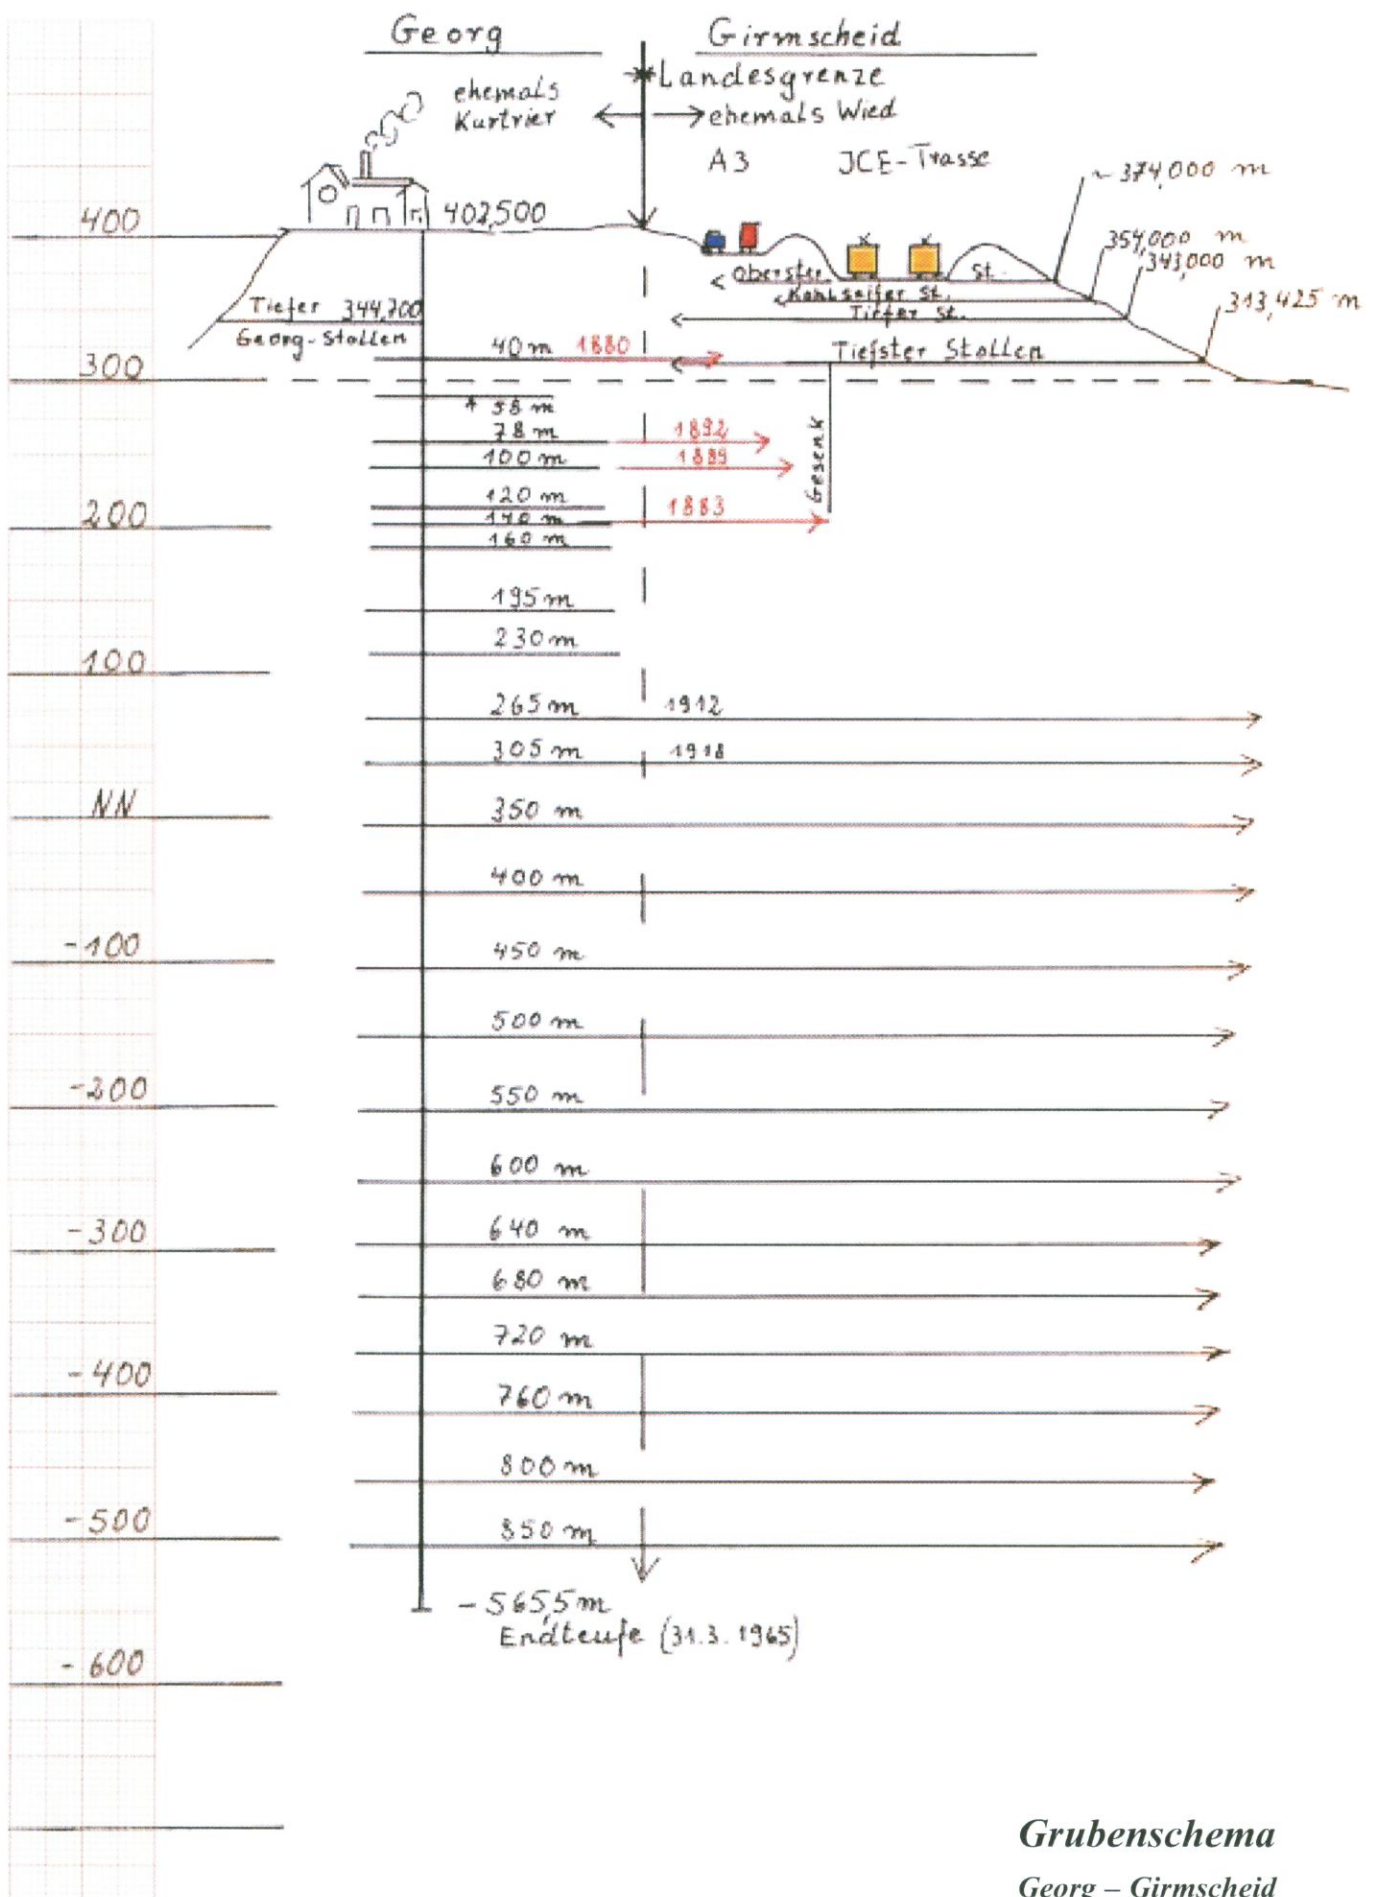 Georg
Girmscheid
Landesgrenze
ehemals
Kurtrier
ehemals Wied
A3
JCE-Trasse
~ 374,000 m
400
402,500
354,000 m
343,000 m
Oberster St.
Kohlseifer St.
313,425 m
Tiefer 344,700
Georg-Stollen
Tiefer St.
40 m 1880
Tiefster Stollen
300
58 m
78 m
1892
100 m
1889
Gesenk
120 m
200
140 m
1883
160 m
195 m
230 m
100
265 m
1912
305 m
1918
NN
350 m
400 m
-100
450 m
500 m
-200
550 m
600 m
-300
640 m
680 m
720 m
-400
760 m
800 m
-500
850 m
-565,5 m
Endteufe (31.3.1965)
-600
Grubenschema
Georg – Girmscheid